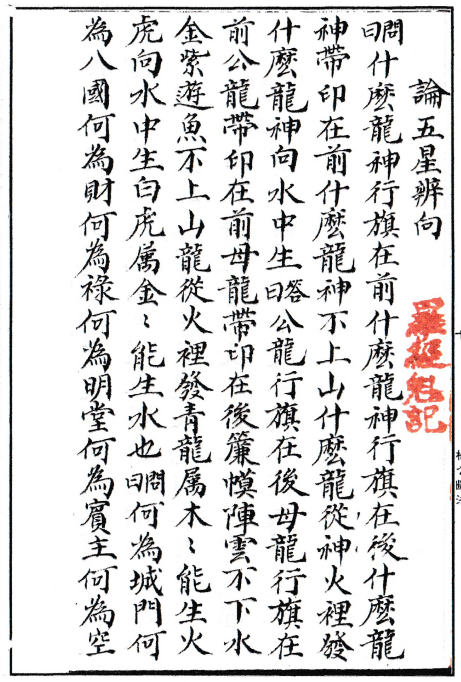 論五星辨向
羅經記
問曰什麽龍神行旗在前什麽龍神行旗在後什麽龍
神帶印在前什麽龍神不上山什麽龍從神火裡發
什麽龍神向水中生答曰公龍行旗在後母龍行旗在
前公龍帶印在前母龍帶印在後簾幙陣雲不下水
金紫遊魚不上山龍從火裡發青龍属木〻能生火
虎向水中生白虎属金〻能生水也問曰何為城門何
為八國何為財何為祿何為明堂何為賓主何為空